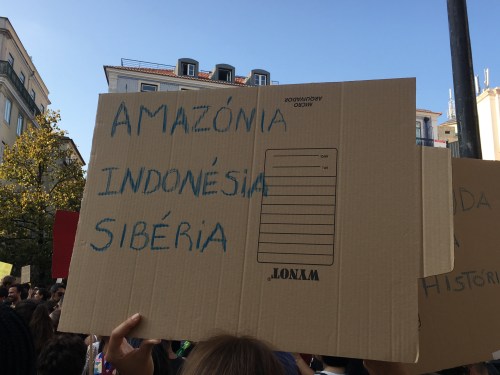 AMAZÓNIA
INDONÉSIA
SIBÉRIA
WYNOT
HISTÓRI